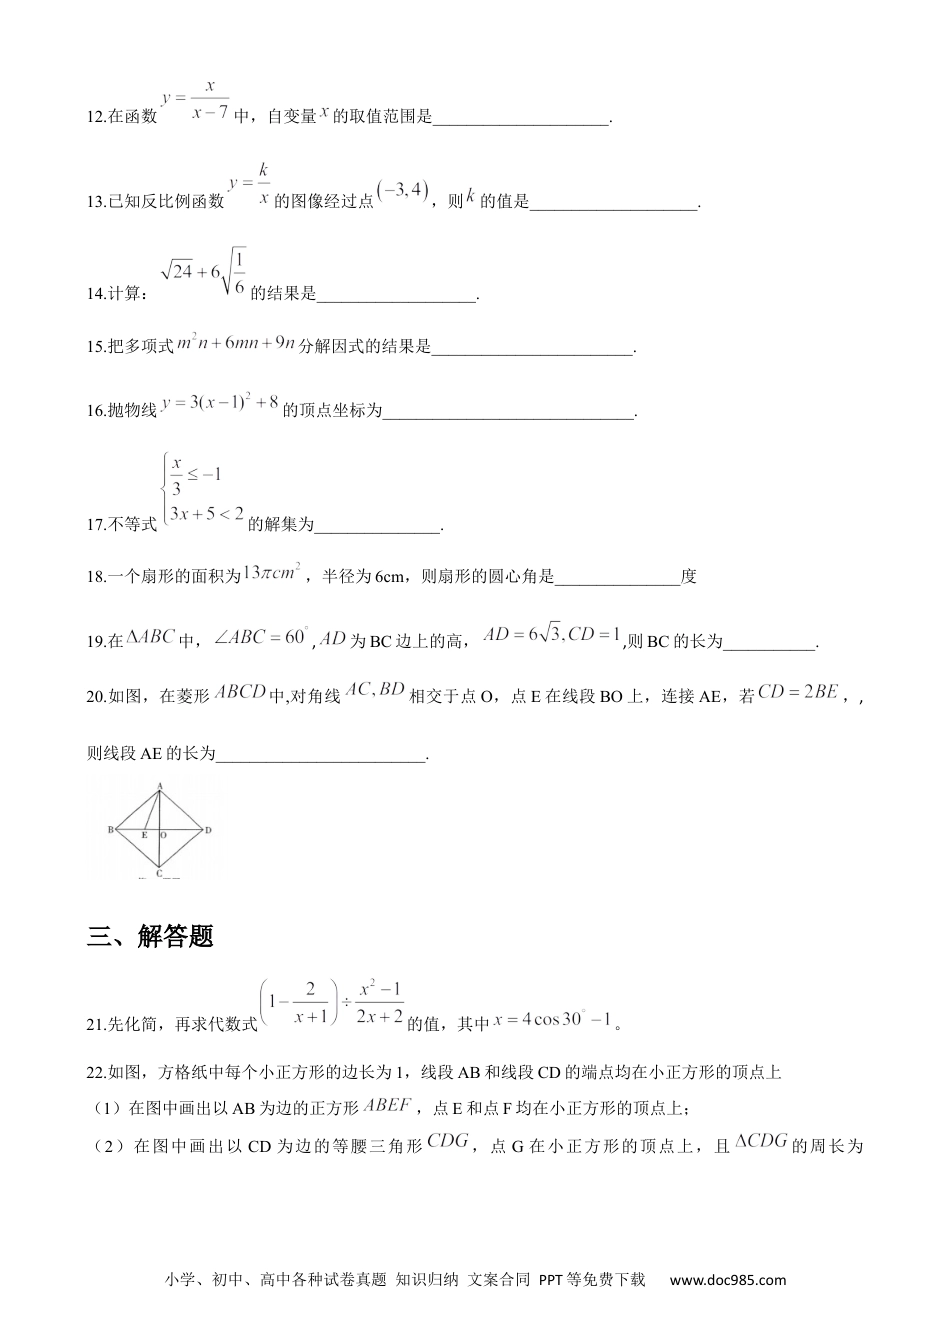 12.在函数 y = x/(x−7) 中，自变量 x 的取值范围是_____________________.
13.已知反比例函数 y = k/x 的图像经过点 (−3,4)，则 k 的值是____________________.
14.计算： √24 + 6√(1/6) 的结果是___________________.
15.把多项式 m²n + 6mn + 9n 分解因式的结果是________________________.
16.抛物线 y = 3(x−1)² + 8 的顶点坐标为______________________________.
17.不等式 { x/3 ≤ −1
3x + 5 < 2 的解集为_______________.
18.一个扇形的面积为13πcm²，半径为 6cm，则扇形的圆心角是_______________度
19.在 ΔABC 中， ∠ABC = 60°, AD 为 BC 边上的高， AD = 6√3, CD = 1,则 BC 的长为___________.
20.如图，在菱形 ABCD 中,对角线 AC, BD 相交于点 O，点 E 在线段 BO 上，连接 AE，若 CD = 2BE ，,
则线段 AE 的长为_________________________.
A
B E O D
C
三、解答题
21.先化简，再求代数式 (1 − 2/(x+1)) ÷ (x²−1)/(2x+2) 的值，其中 x = 4cos30° −1 。
22.如图，方格纸中每个小正方形的边长为 1，线段 AB 和线段 CD 的端点均在小正方形的顶点上
（1）在图中画出以 AB 为边的正方形 ABEF ，点 E 和点 F 均在小正方形的顶点上；
（2）在图中画出以 CD 为边的等腰三角形 CDG ，点 G 在小正方形的顶点上，且 ΔCDG 的周长为
小学、初中、高中各种试卷真题 知识归纳 文案合同 PPT 等免费下载 www.doc985.com